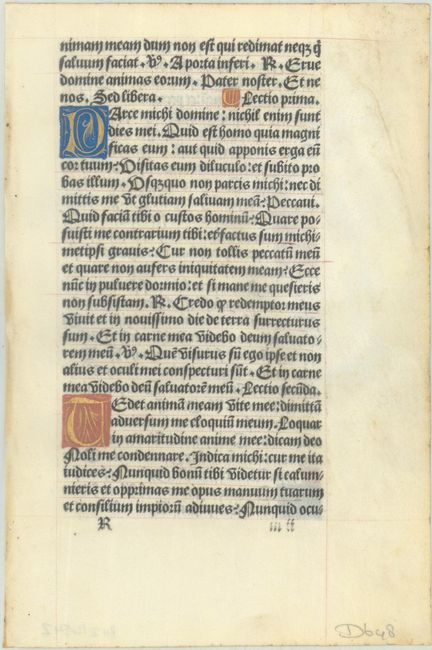 nimam meam dum non est qui redimat neqꝫ q̃
saluum faciat. ℣. A porta inferi. ℟. Erue
domine animas eorum. Pater noster. Et ne
nos. Sed libera. Lectio prima.
PArce michi domine: nichil enim sunt
dies mei. Quid est homo quia magni
ficas eum: aut quid apponis erga eũ
cor tuum: Visitas eum diluculo: et subito pro
bas illum. Vsqꝫquo non parcis michi: nec di
mittis me vt glutiam saliuam meam: Peccaui.
Quid faciã tibi o custos hominũ: Quare po-
suisti me contrarium tibi: et factus sum michi-
metipsi grauis: Cur non tollis peccatũ meũ
et quare non aufers iniquitatem meam: Ecce
nũc in puluere dormio: et si mane me quesieris
non subsistam. ℟. Credo ꝙ redemptor meus
viuit et in nouissimo die de terra surrecturus
sum. Et in carne mea videbo deum saluato-
rem meũ. ℣. Quẽ visurus sũ ego ipse et non
alius et oculi mei conspecturi sũt. Et in carne
mea videbo deũ saluatorẽ meũ. Lectio secũda.
TEdet animã meam vite mee: dimittã
aduersum me eloquiũ meum. Loquar
in amaritudine anime mee: dicam deo
Noli me condennare. Indica michi: cur me ita
iudices: Nunquid bonũ tibi videtur si calum-
nieris et opprimas me opus manuum tuarum
et consilium impiorũ adiuues: Nunquid ocu-
R
D698